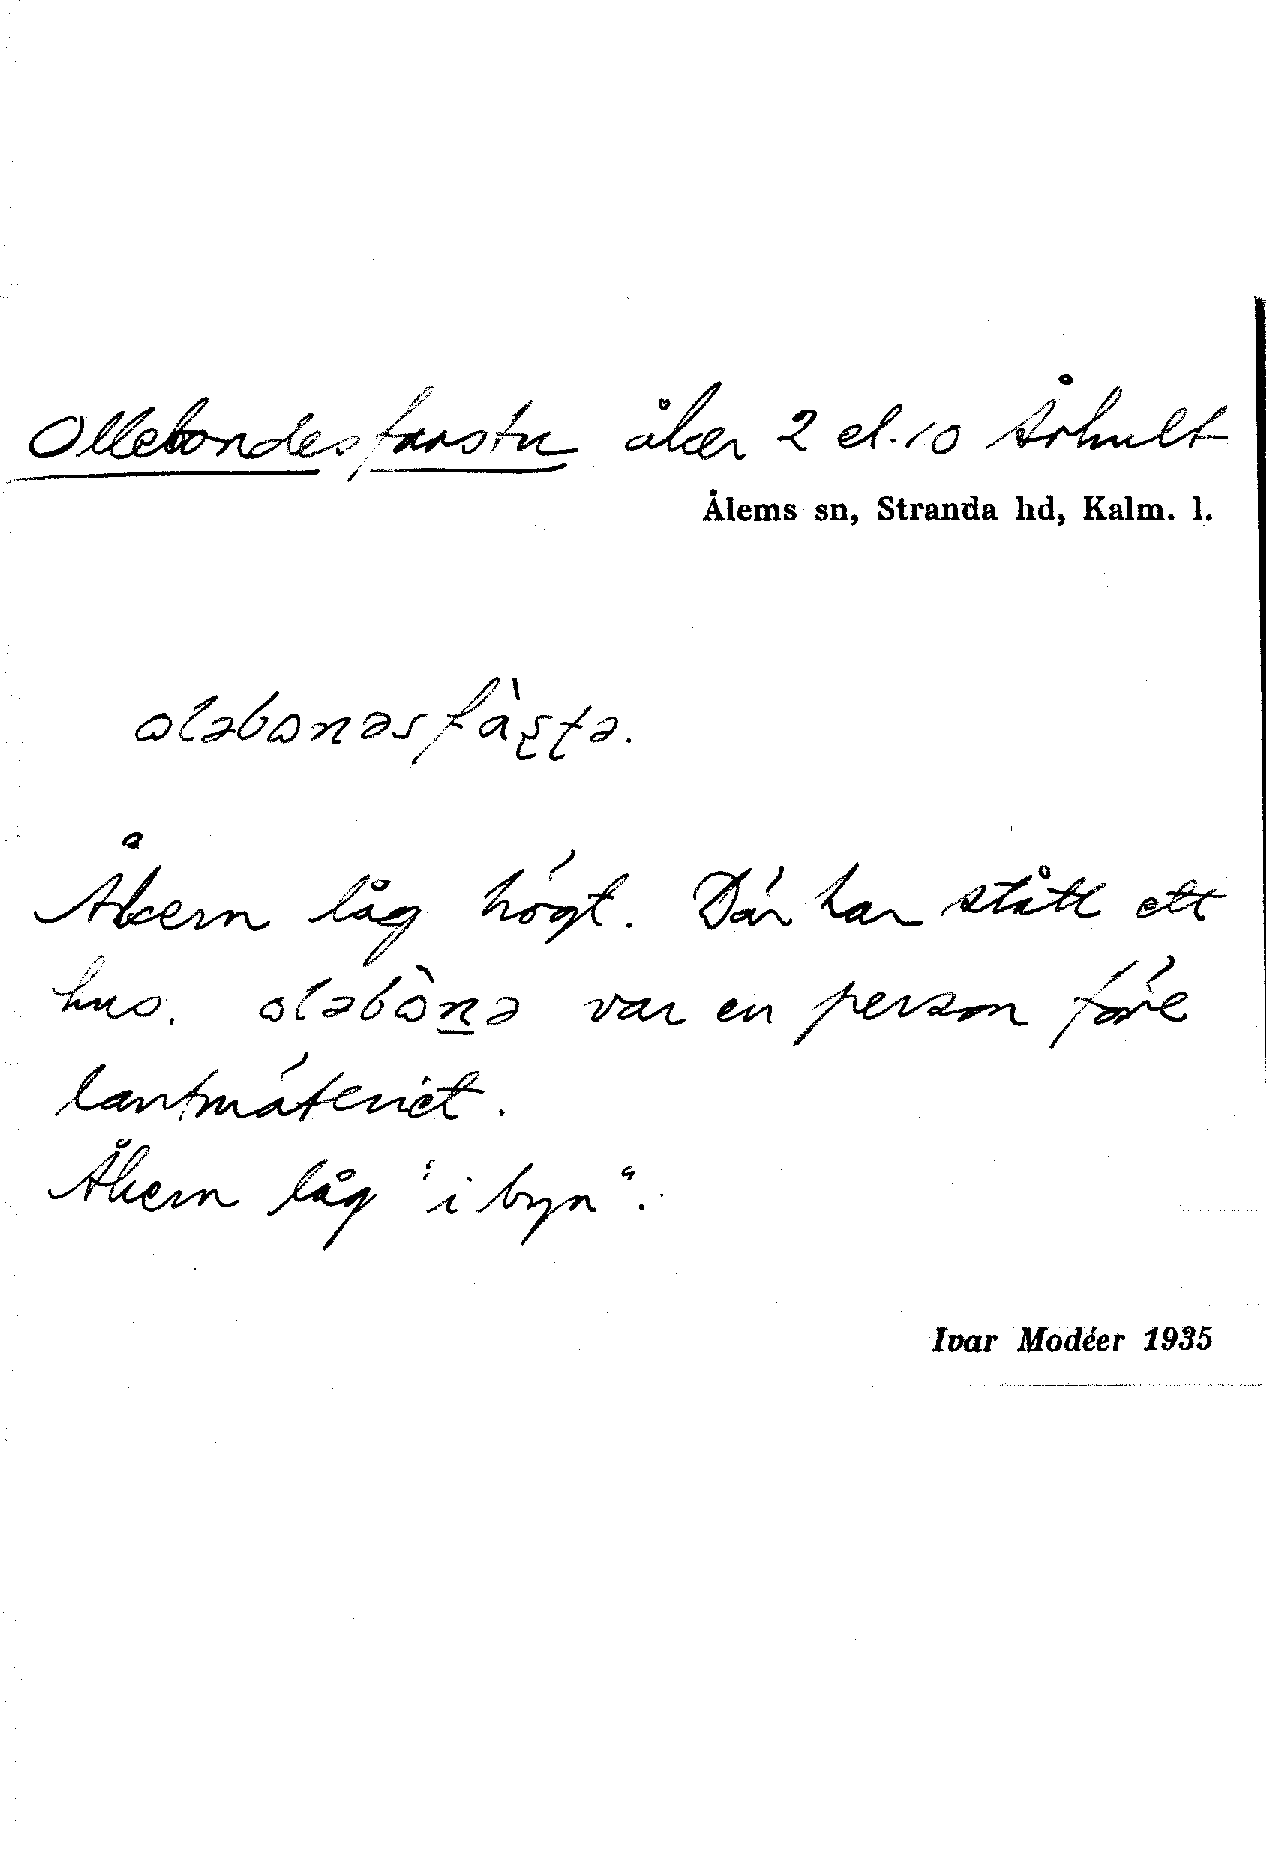 Ollebondesfarstu åker 2 el. 10 Århult
Ålems sn, Stranda hd, Kalm. l.
ɷləbɷnəsfàʂʈə.
Åkern låg högt. Där har stått ett
hus. ɷləbɷ̀nə var en person före
lantmäteriet.
Åkern låg "i byn".
Ivar Modéer 1935